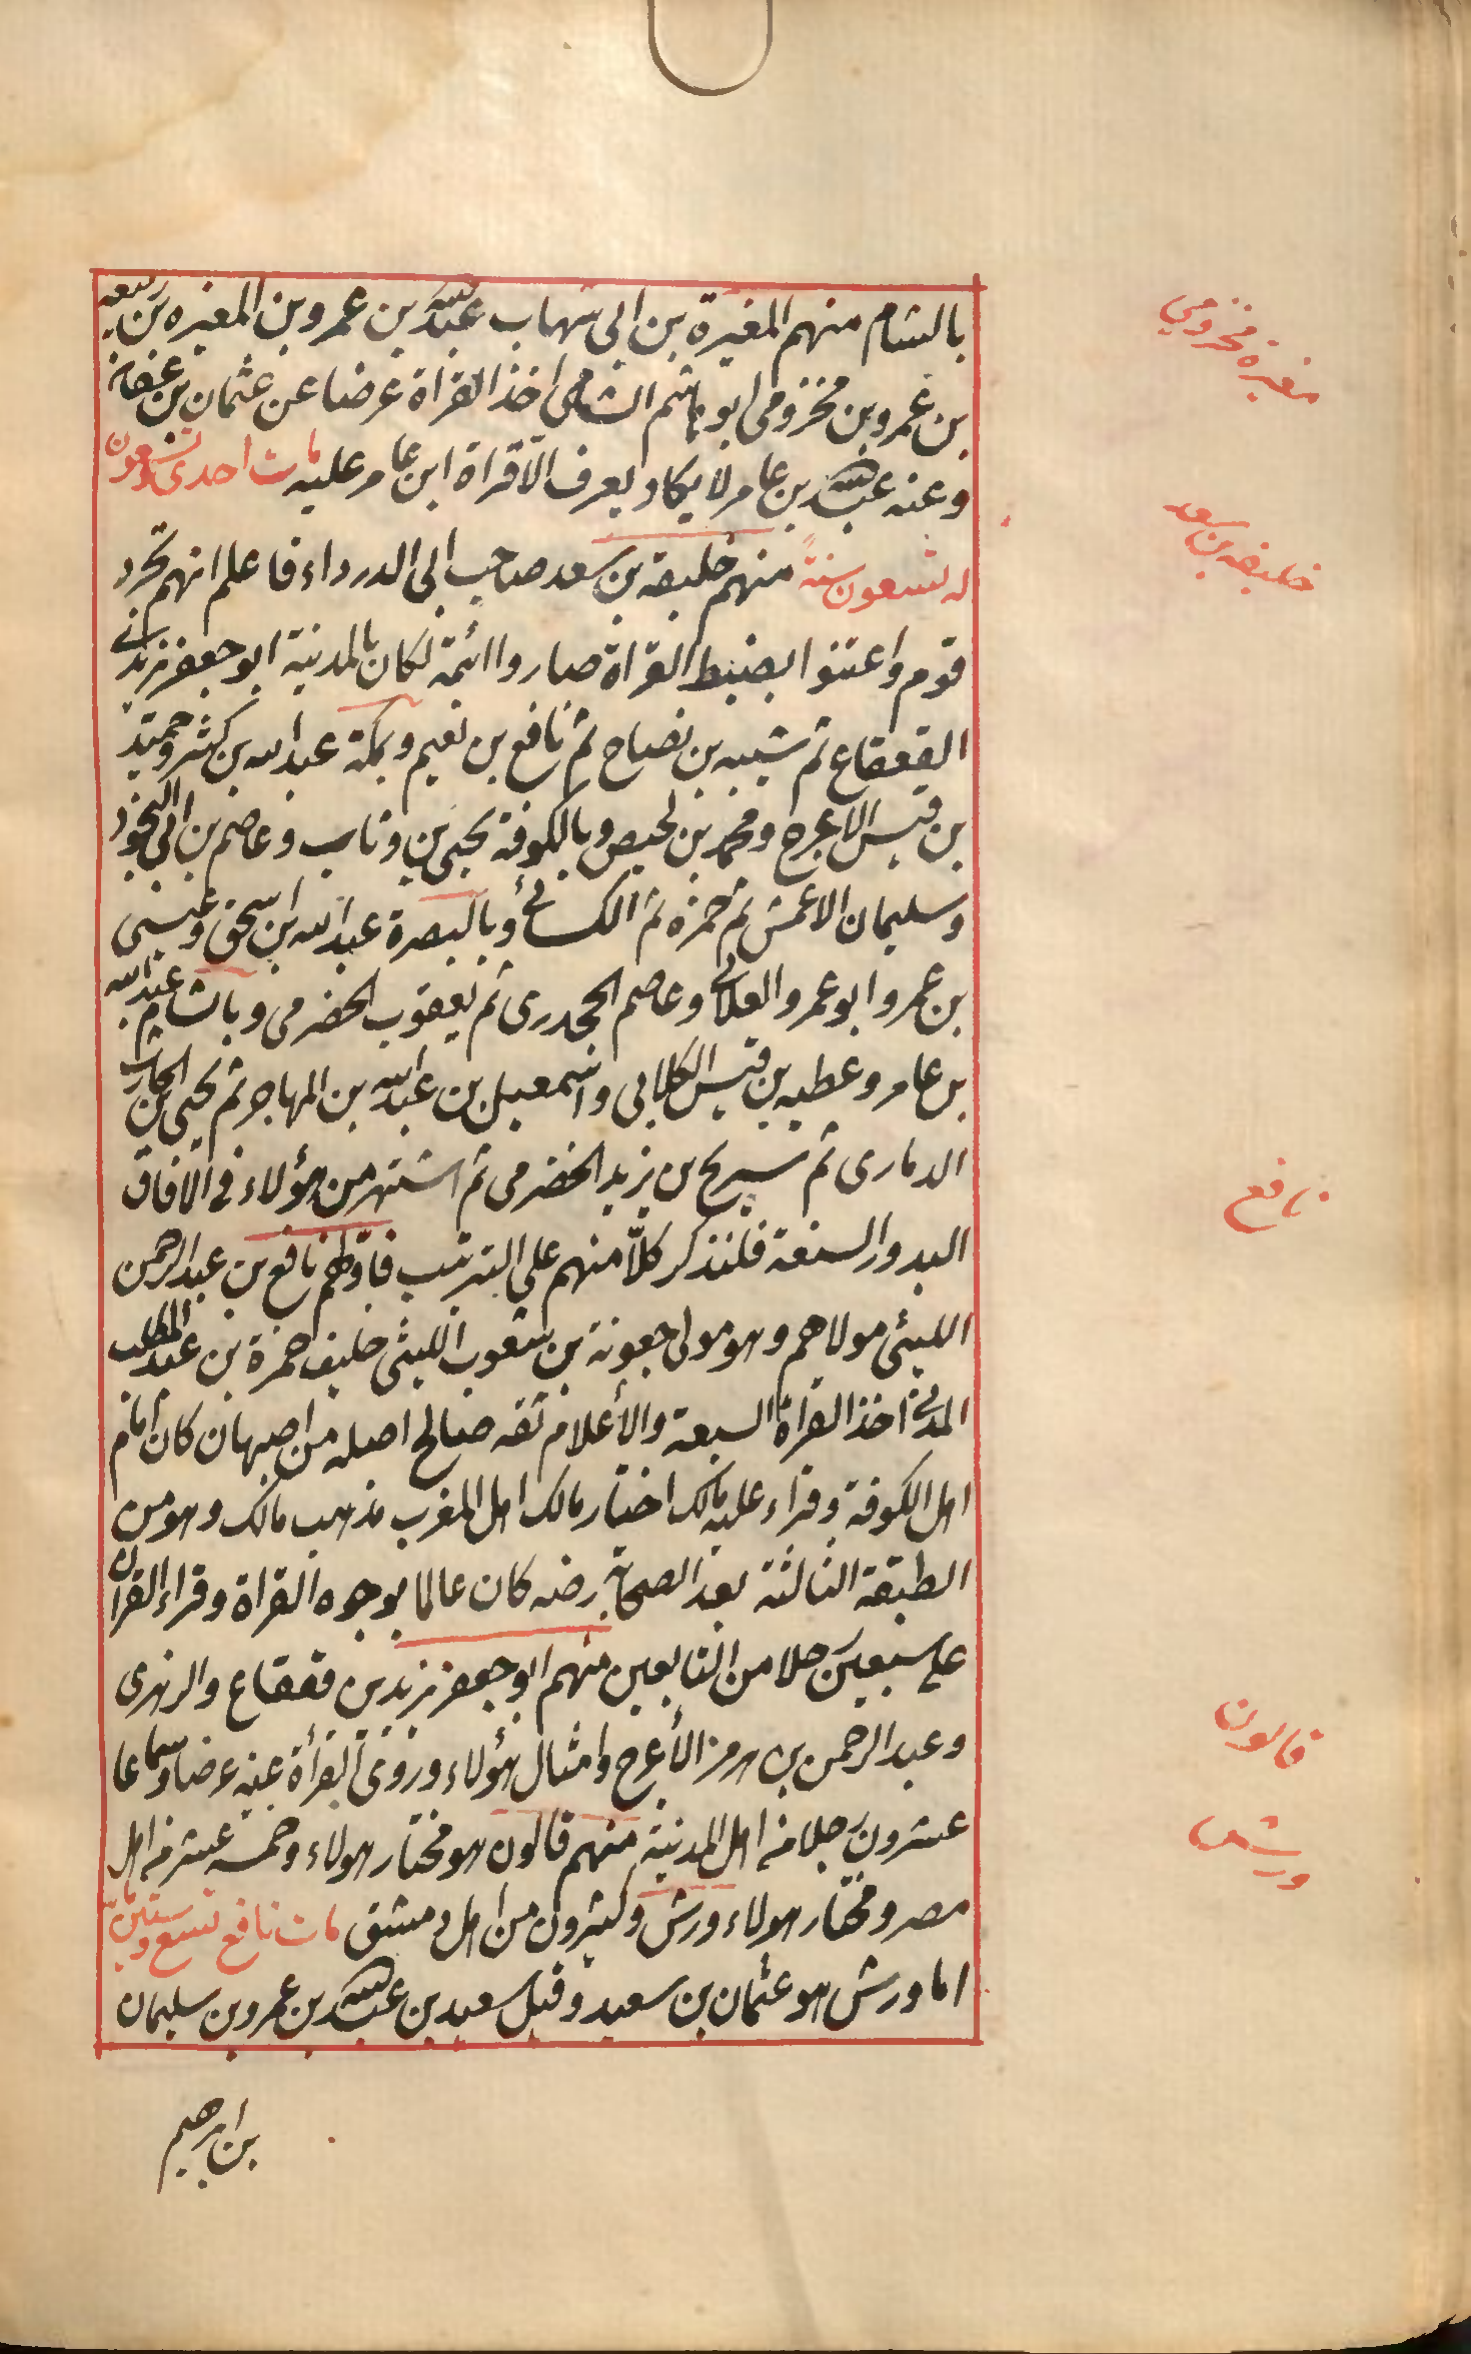 بالشام منهم المغيرة بن ابى شهاب عبدالله بن عمرو بن المغيره بن ربيعه
بن عمرو بن مخزومى ابو هاشم الشامى اخذ القراة عرضا عن عثمان بن عفان
وعنه عبدالله بن عامر لا يكاد يعرف الا قراة ابن عامر عليه مات احدى وتسعون
له تسعون سنة منهم خليفه بن سعد صاحب ابى الدرداء فاعلم انهم تجرد
قوم واعتنوا بضبط القراة صاروا ائمة لكان بالمدينة ابو جعفر يزيد بن
القعقاع ثم شيبه بن نصاح ثم نافع بن نعيم وبمكة عبدالله بن كثير وحميد
بن قيس الاعرج ومحمد بن محيص وبالكوفة يحيى بن وثاب وعاصم بن ابى النجود
وسليمان الاعمش ثم حمزه ثم الكسائى وبالبصرة عبدالله ابن اسحق وعيسى
بن عمرو ابو عمرو العلائى وعاصم الجحدرى ثم يعقوب الحضرمى وبالشام عبدالله
بن عامر وعطيه بن قيس الكلابى واسمعيل بن عبدالله بن المهاجر ثم يحيى بن الحارث
الدمارى ثم سريح بن يزيد الحضرمى ثم اشتهر من هؤلاء فى الافاق
البدور السبعة فلنذكر كلاّ منهم على الترتيب فاولهم نافع بن عبدالرحمن
الليثى مولاهم وهو مولى جعونة بن شعوب الليثى حليف حمزة بن عبدالمطلب
المدنى اخذ القراة السبعة والأعلام ثقه صالح اصله من اصبهان كان امام
اهل الكوفة وقراء عليه مالك اختار مالك اهل المغرب مذهب مالك وهو من
الطبقة الثالثة بعد الصحابة رضه كان عالما بوجوه القراة وقراء القران
على سبعين رجلا من التابعين منهم ابو جعفر يزيد بن قعقاع والزهرى
وعبدالرحمن بن هرمز الأعرج وامثال هؤلاء وروى القرأة عنه عرضا وسماعا
عشرون رجلا من اهل المدينة منهم قالون هو مختار هولاء وخمسه عشر من اهل
مصر ومختار هولاء ورش وكثيرون من اهل دمشق مات نافع تسع وستين
اما ورش هو عثمان بن سعيد وقيل سعيد بن عبدالله بن عمرو بن سليمان
بن ابرهيم
مغيرة مخزومي
خليفه بن سعد
نافع
قالون
ورش